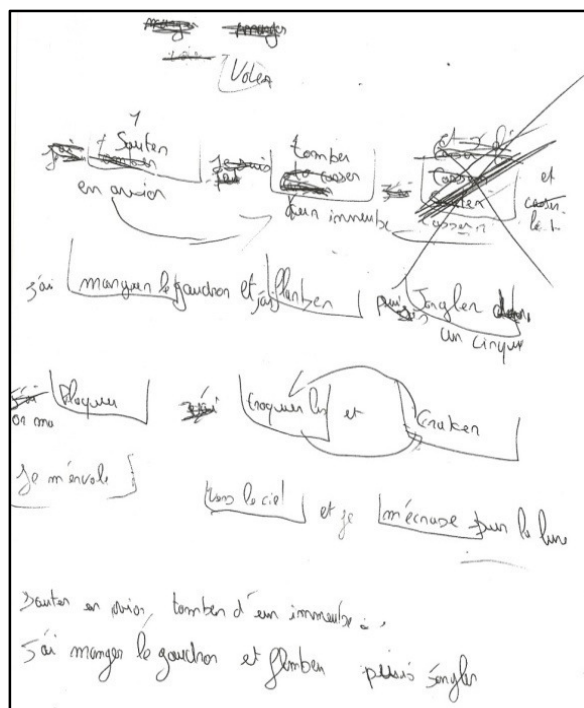 manger manger
Voler
j'ai Sauter tomber je suis tomber casser et
en avion d'un immeuble casser
j'ai manger le gaudron et j'ai flamber puis Jongler dans
un cirque
j'ai bloquer j'ai Croquer les et Craker
on ma
Je m'envole vers le ciel et je m'écrase sur la lune
Sauter en avion, tomber d'un immeuble,
j'ai manger le gaudron et flamber puis jongler